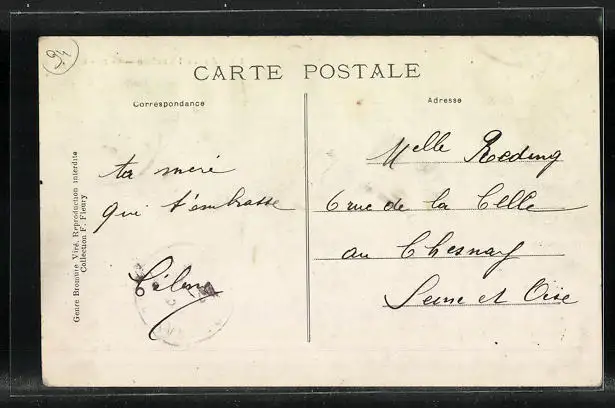 94
CARTE POSTALE
Correspondance
Adresse
Genre Bromure Viré, Reproduction interdite
Collection F. Fleury
ta mère
qui t'embrasse
Melle Reding
6 rue de la Celle
au Chesnay
Seine et Oise